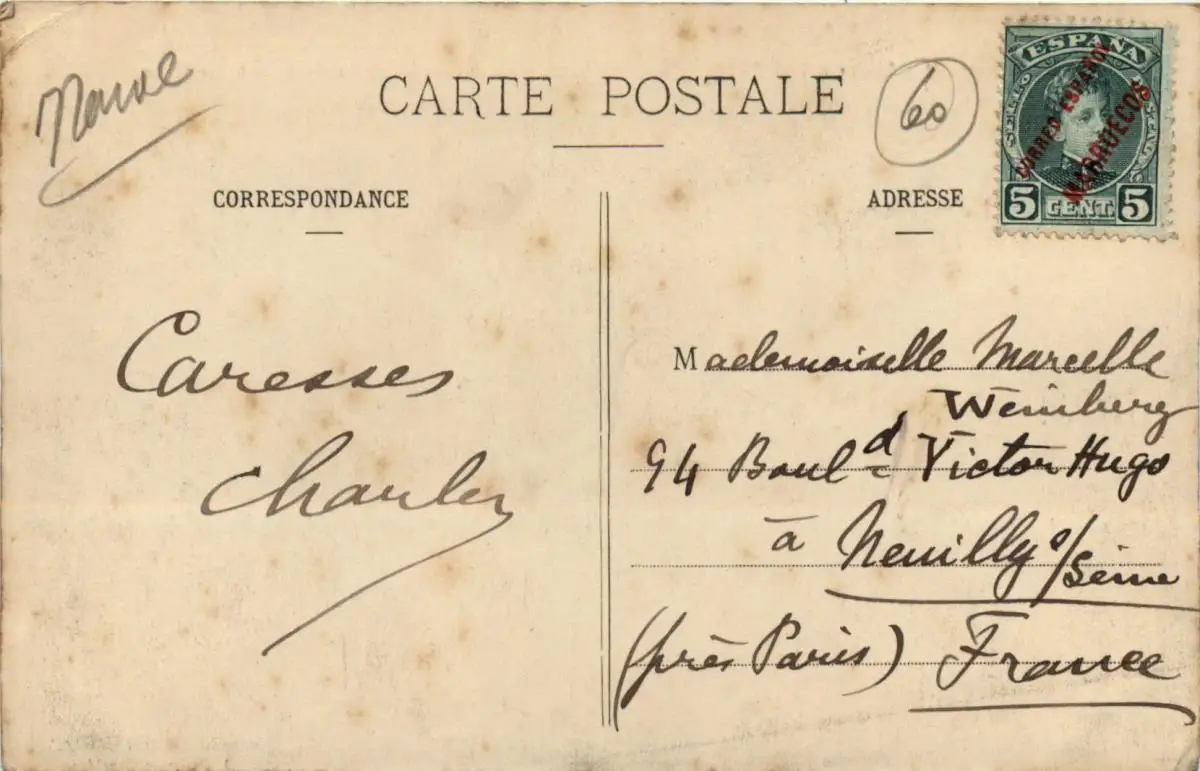 Maroc
CARTE POSTALE
60
ESPAÑA
CORREO ESPAÑOL
MARRUECOS
5 CENT. 5
CORRESPONDANCE
ADRESSE
Caresses
Charles
Mademoiselle Marcelle
Weinberg
94 Boul.d Victor Hugo
à Neuilly s/Seine
(près Paris) France